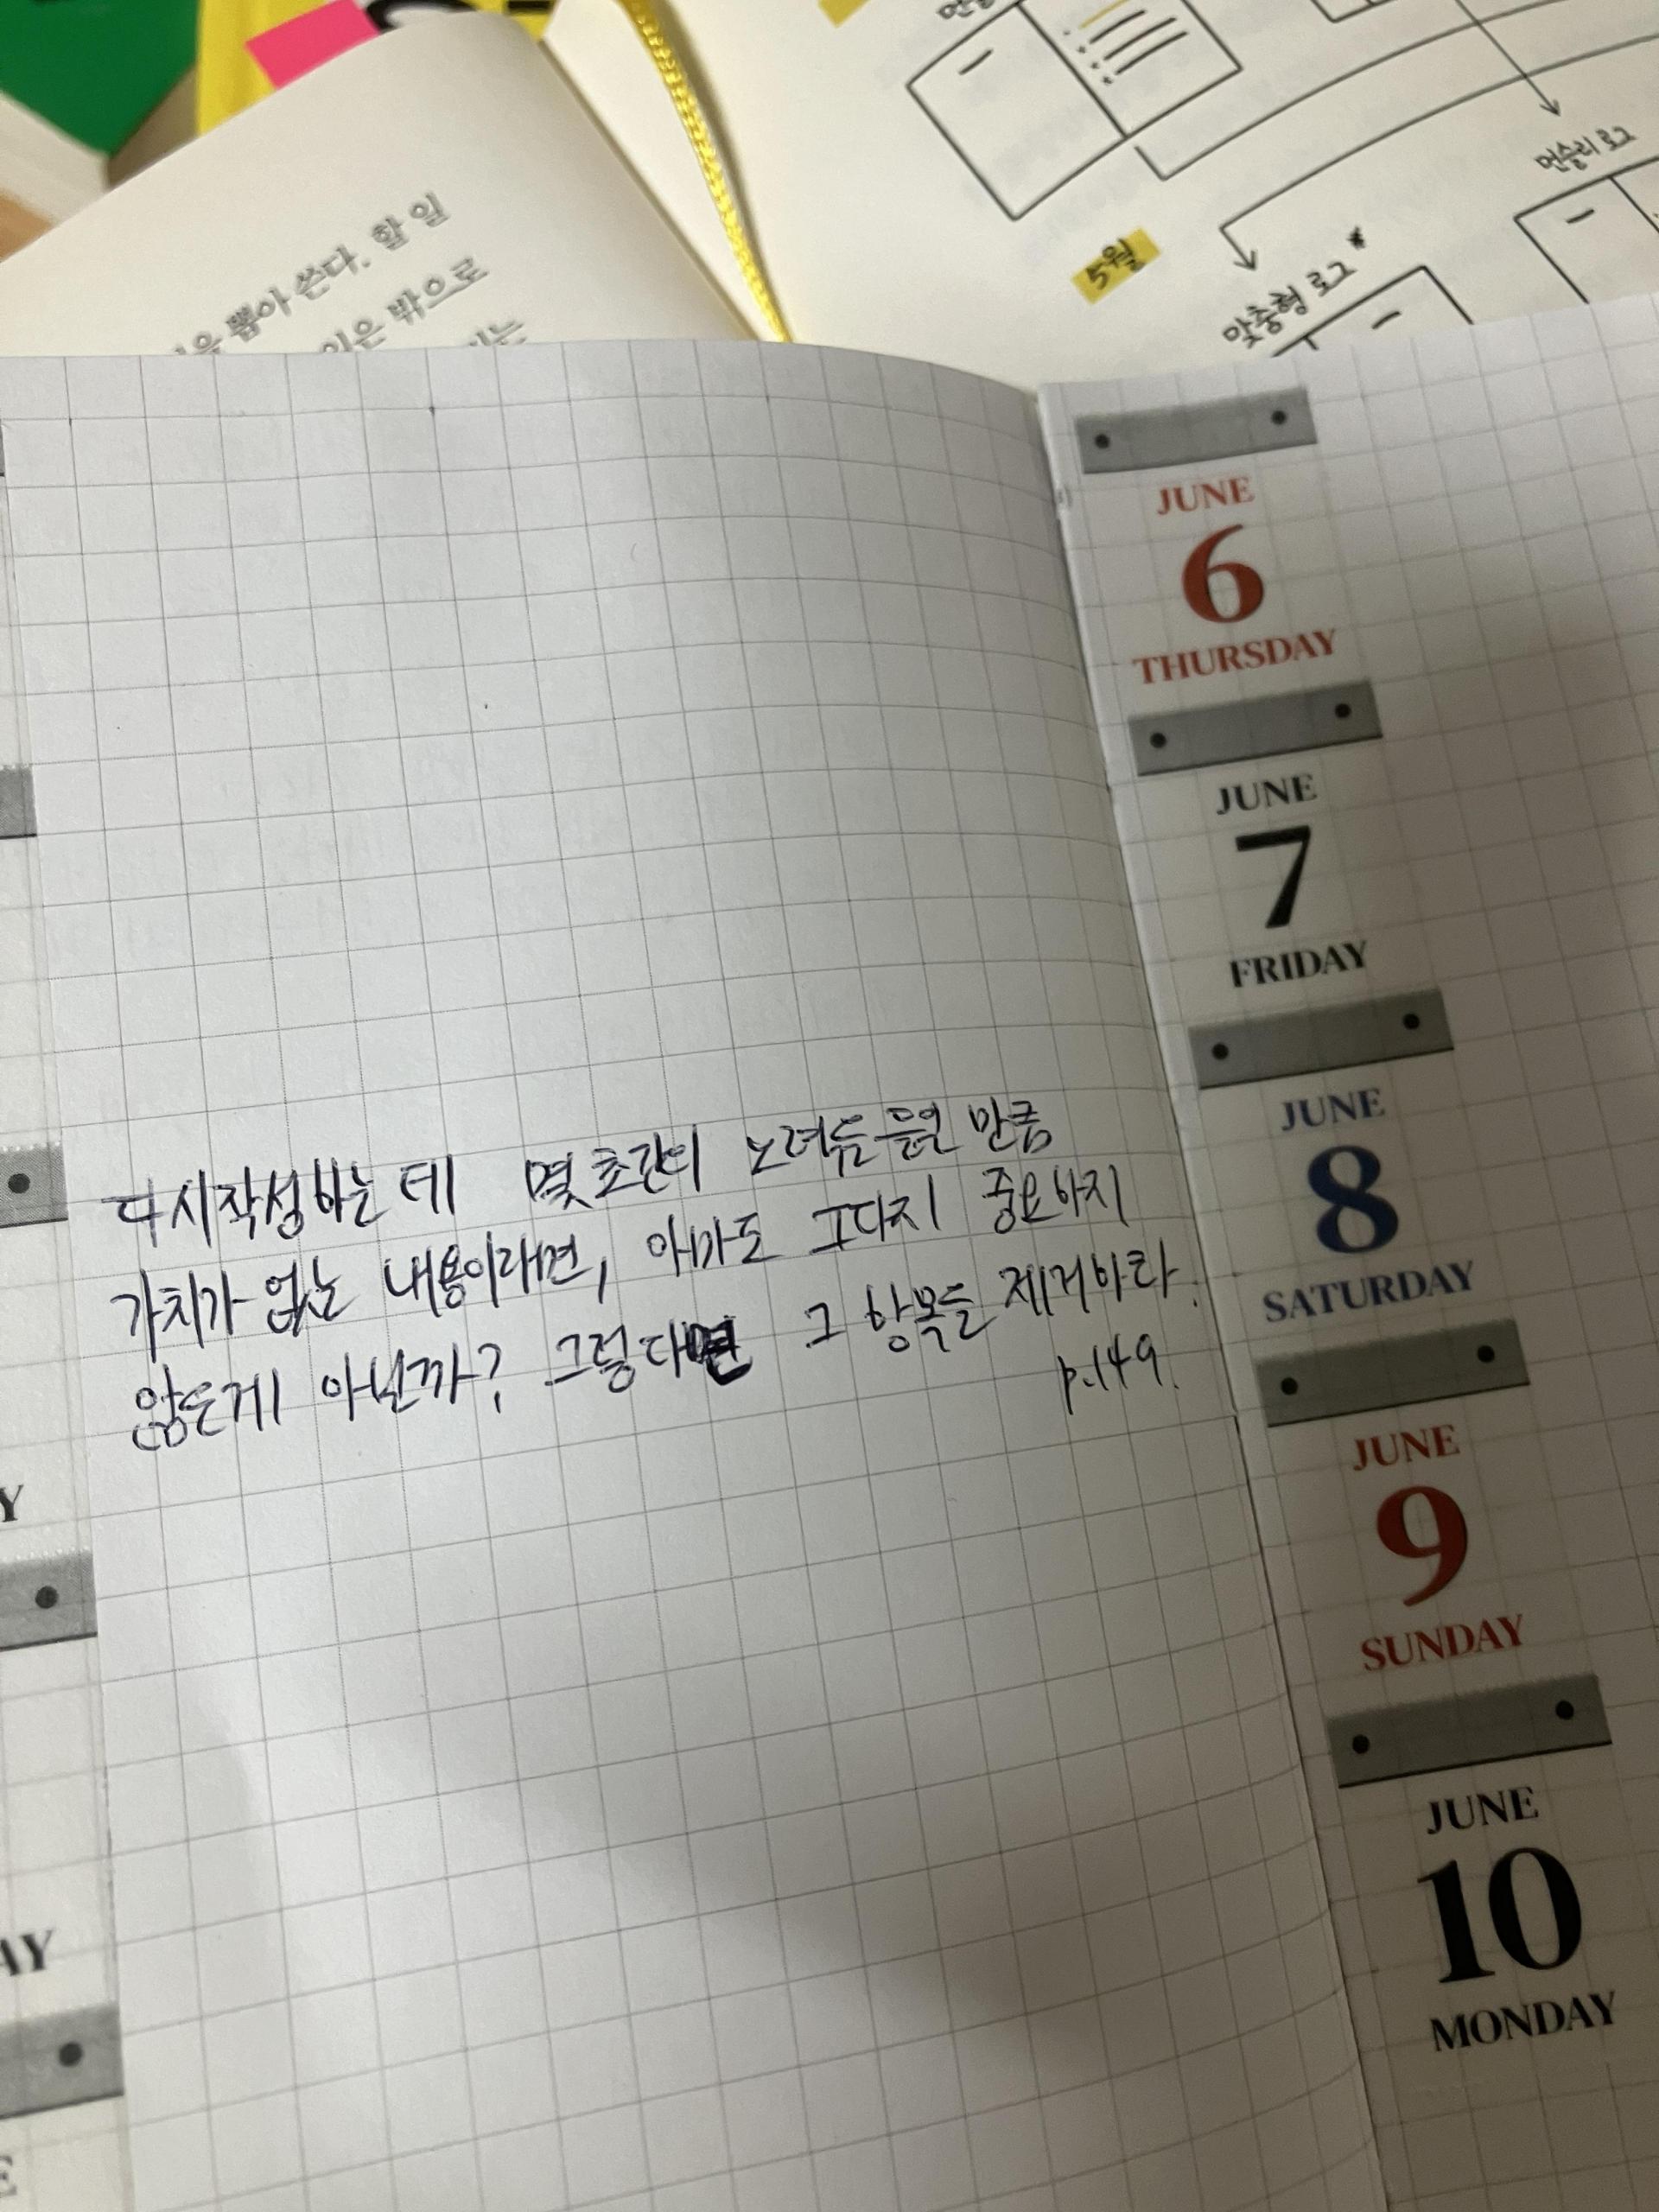 할 일
뽑아 쓴다.
밖으로
5월
맞춤형 로그
먼슬리 로그
다시작성하는데 몇초간의 노력을 들일 만큼
가치가 없는 내용이라면, 아마도 그다지 중요하지
않은게 아닐까? 그렇다면 그 항목을 제거하라.
p.149.
JUNE
6
THURSDAY
JUNE
7
FRIDAY
JUNE
8
SATURDAY
JUNE
9
SUNDAY
JUNE
10
MONDAY